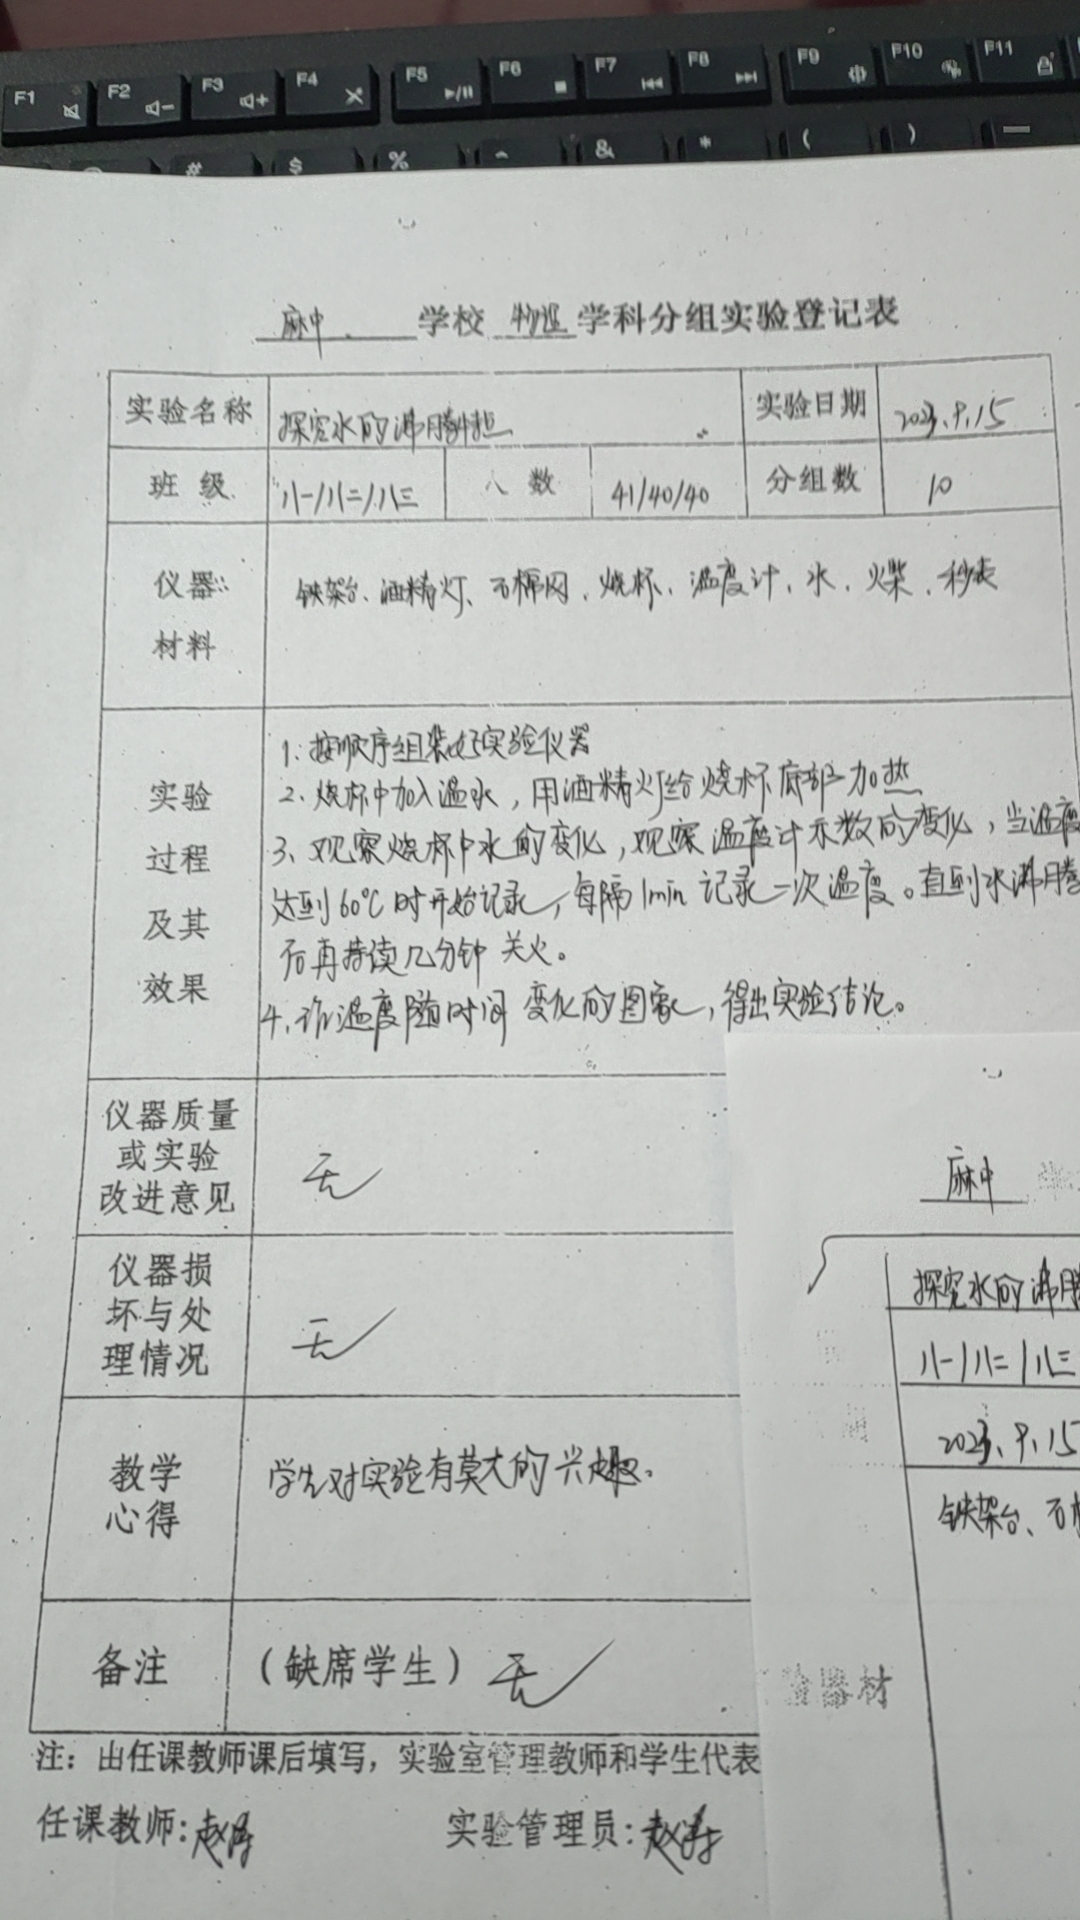 F1 F2 F3 F4 F5 F6 F7 F8 F9 F10 F11
# $ % ^ & * ( ) —
麻中 学校 物理 学科分组实验登记表
实验名称 探究水的沸腾特点 实验日期 2023.9.15
班级 八一/八二/八三 人数 41/40/40 分组数 10
仪器 铁架台、酒精灯、石棉网、烧杯、温度计、水、火柴、秒表
材料
1、按顺序组装好实验仪器
实验 2、烧杯中加入温水，用酒精灯给烧杯底部加热
过程 3、观察烧杯中水的变化，观察温度计示数的变化，当温度
及其 达到60℃时开始记录，每隔1min记录一次温度。直到水沸腾
效果 后再持续几分钟关火。
4、作温度随时间变化的图象，得出实验结论。
仪器质量
或实验 无
改进意见
仪器损
坏与处 无
理情况
教学 学生对实验有莫大的兴趣。
心得
备注 （缺席学生）无
注：由任课教师课后填写，实验室管理教师和学生代表
任课教师： 实验管理员：
麻中
探究水的沸腾
八一/八二/八三
2023.9.15
铁架台、石
验器材